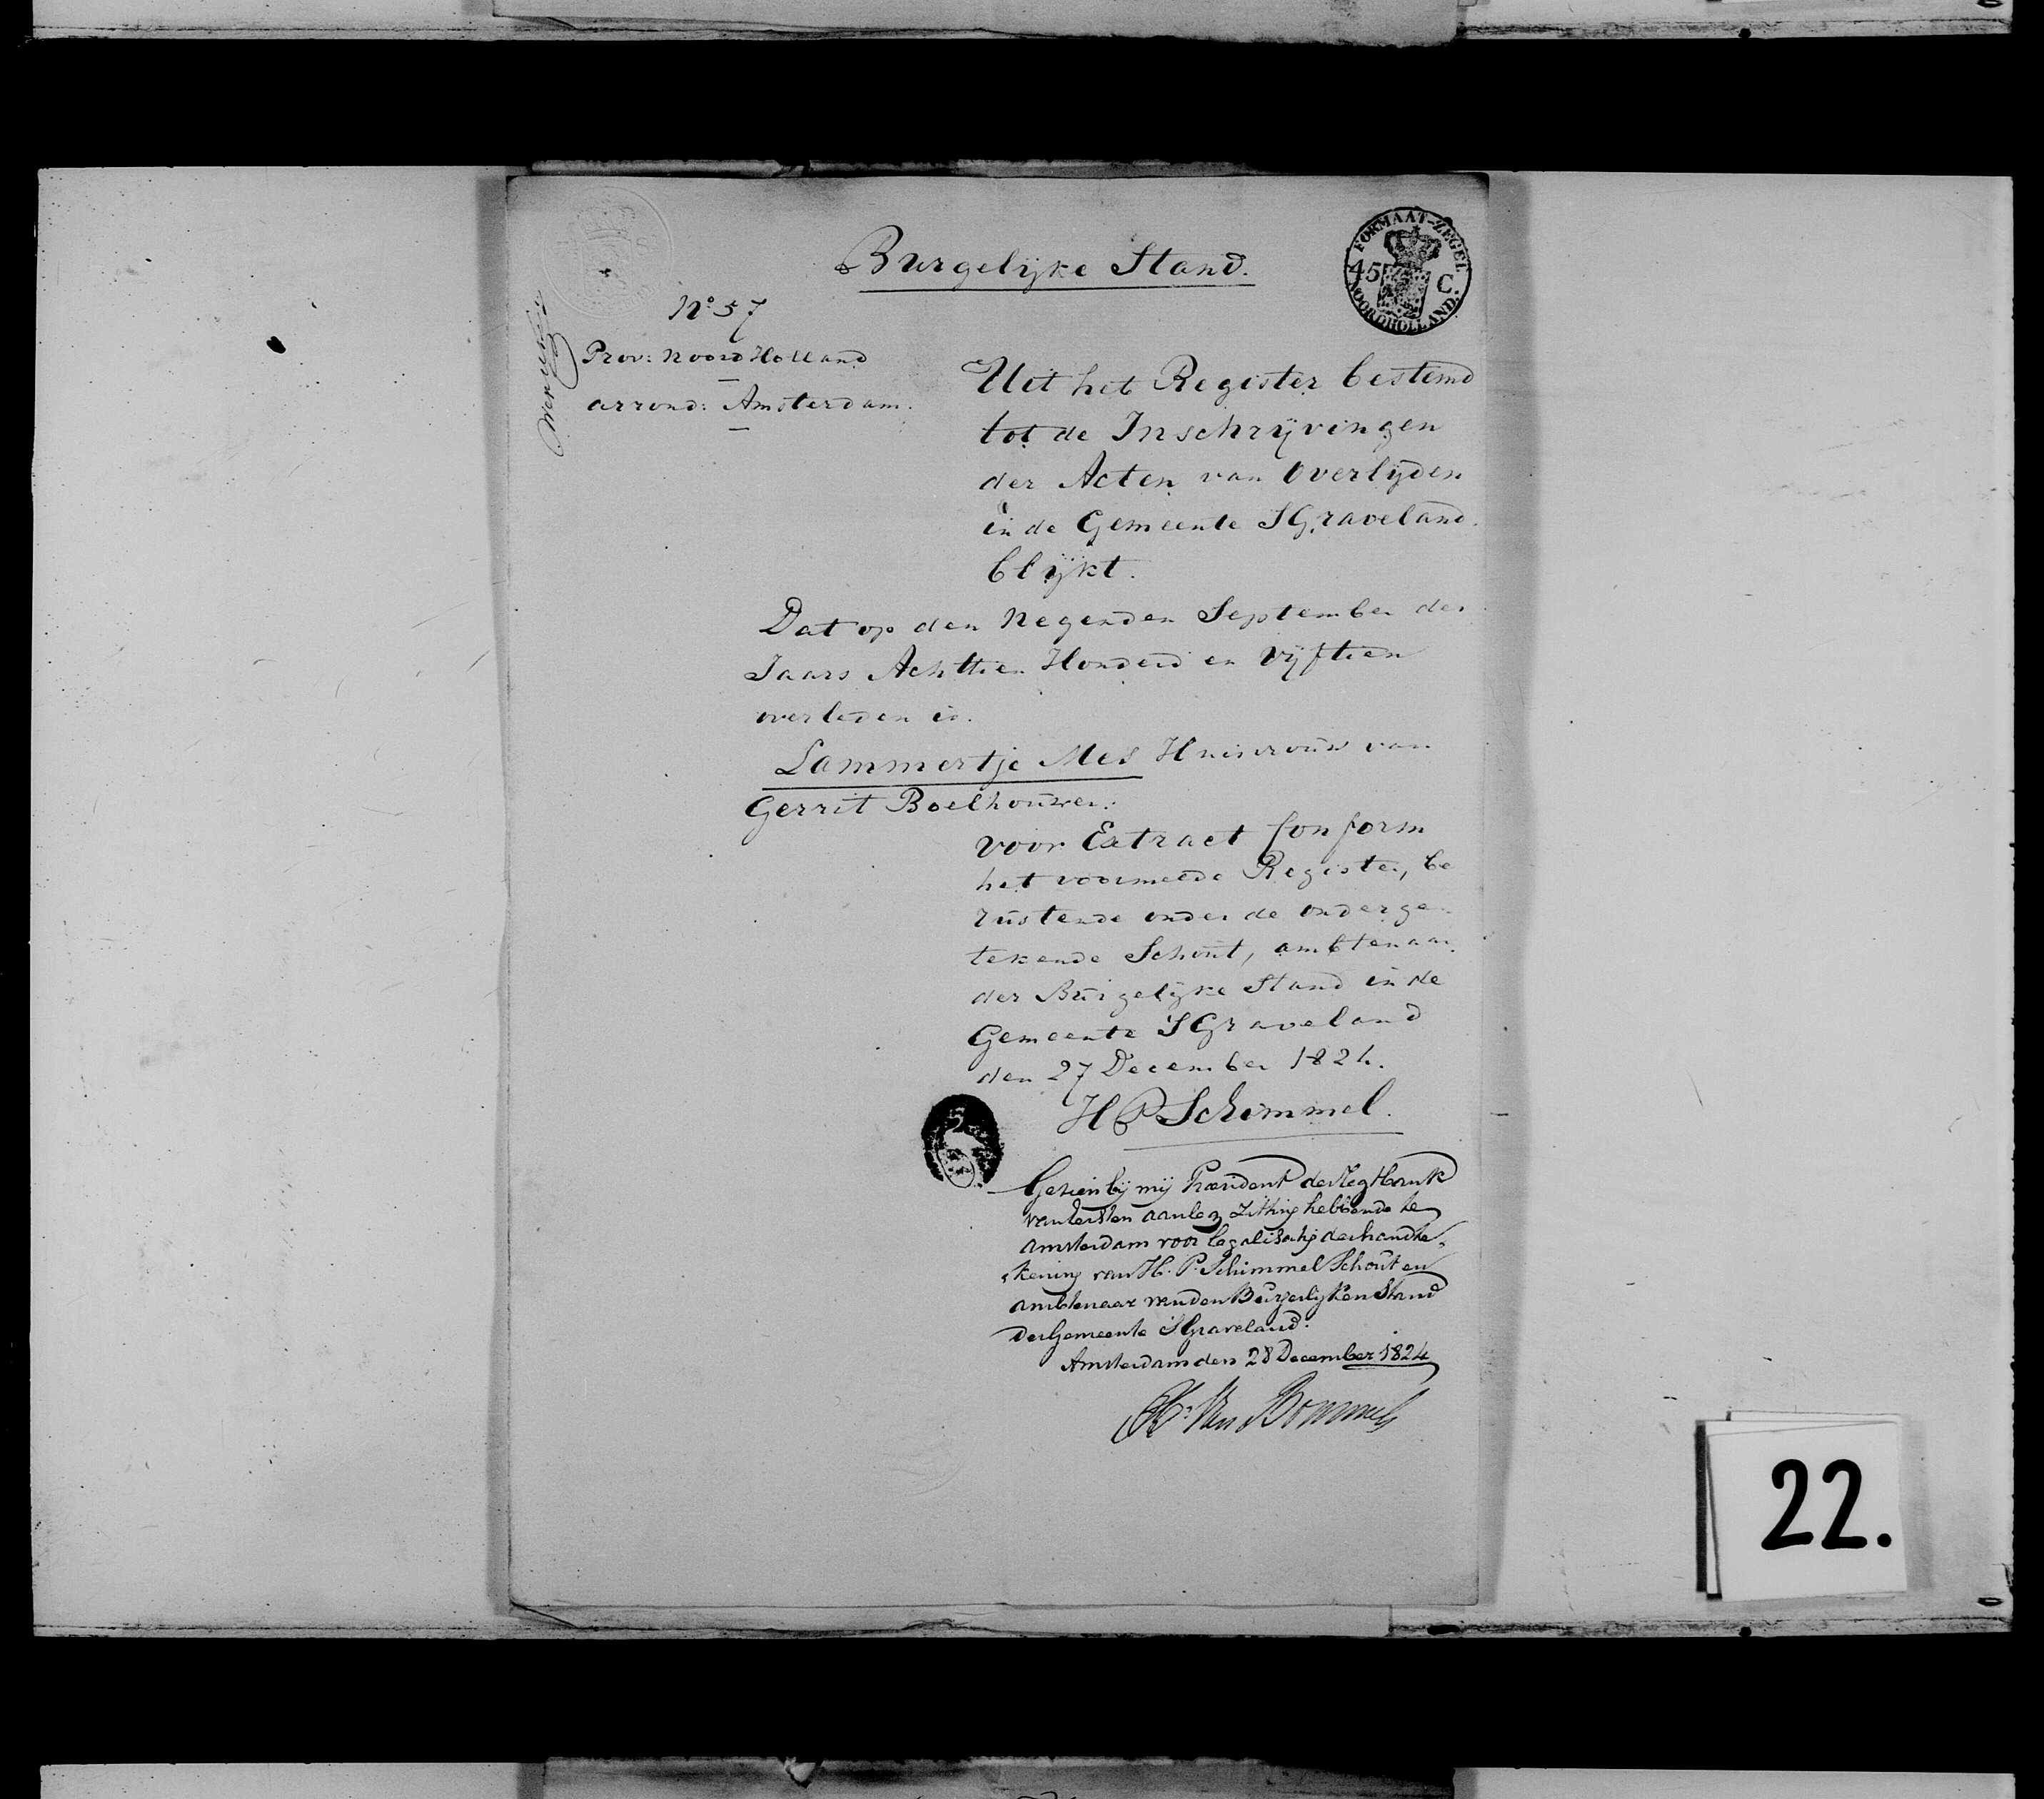 Burgelijke Stand.
FORMAAT-ZEGEL
45 C.
NOORDHOLLAND.
N° 57
Prov: Noord Holland
arrond: Amsterdam.
Uit het Register bestemd
tot de Inschrijvingen
der Acten van Overlijden
in de Gemeente SGraveland
blijkt.
Dat op den Negenden September des
Jaars Achttien Honderd en Vijftien
overleden is.
Lammertje Mes Huisvrouw van
Gerrit Boelhouwer.
voor Extract Conform
het voormelde Register, be
rustende onder de onderge
tekende Schout, ambtenaar
der Burgelijke Stand in de
Gemeente SGraveland
den 27 December 1824.
HP Schimmel.
Gezien bij mij President der Regtbank
van Eersten aanleg Zitting hebbende te
Amsterdam voor legalisatie der handte
kening van H. P. Schimmel Schout en
ambtenaar van den Burgerlijken Stand
der Gemeente SGraveland.
Amsterdam den 28 December 1824
Van Bommel
22.